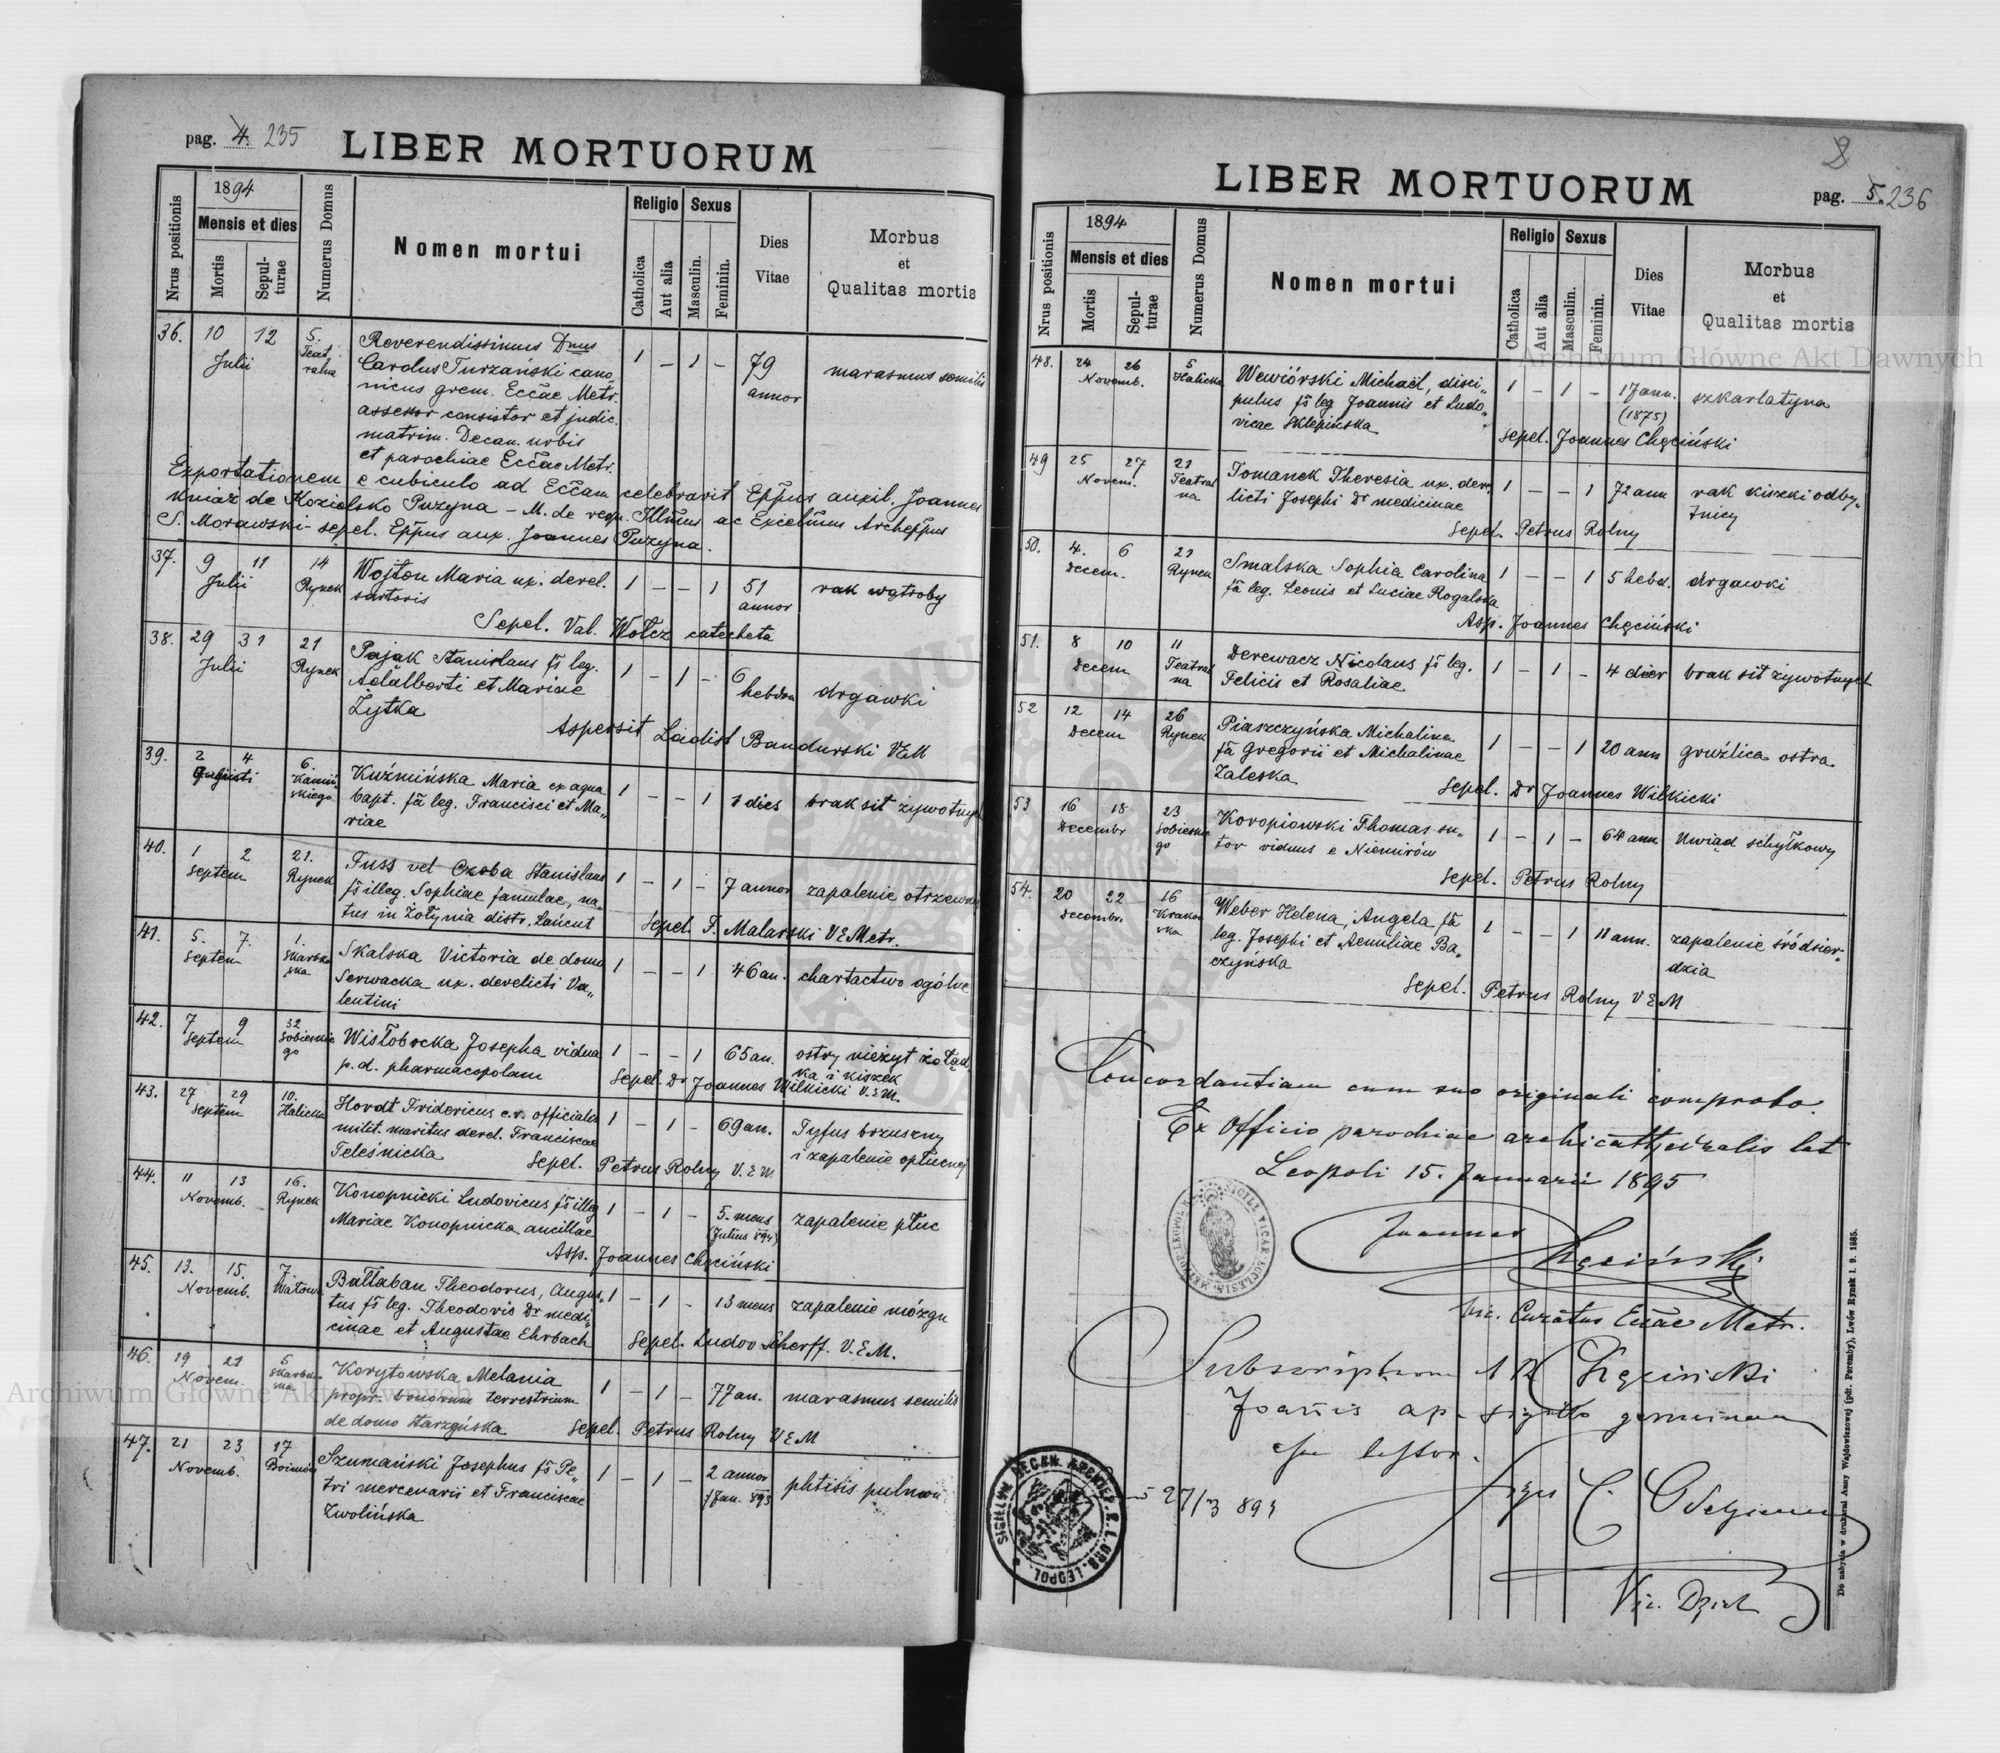 pag. 4. 235
LIBER MORTUORUM
Nrus positionis
1894
Mensis et dies
Mortis
Sepulturae
Numerus Domus
Nomen mortui
Religio
Catholica
Aut alia
Sexus
Masculin.
Feminin.
Dies Vitae
Morbus et Qualitas mortis
36. 10 12 5. Reverendissimus Dnus
Julii Teatralna Carolus Turzański cano-
nicus grem. Eccae Metr.
assessor consistor et judic.
matrim. Decan. urbis
et parochiae Eccae Metr.
1 – 1 – 79 annor marasmus senilis
Exportationem e cubiculo ad Eccam celebravit Eppus auxil. Joannes
kniaź de Kozielsko Puzyna – M. de requ. Illmus ac Excelmus Archeppus
S. Morawski – sepel. Eppus aux. Joannes Puzyna.
37. 9 11 14 Wojton Maria ux. derel.
Julii Rynek sartoris
1 – – 1 51 annor rak wątroby
Sepel. Val. Wołcz catecheta
38. 29 31 21 Pająk Stanislaus fs leg.
Julii Rynek Adalberti et Mariae
Żytka
1 – 1 – 6 hebdm drgawki
Aspersit Ladisl Bandurski VEM
39. 2 4 6. Kuźmińska Maria ex aqua
Augusti Kamińskiego bapt. fa leg. Francisci et Ma„
riae
1 – – 1 1 dies brak sił żywotnych
40. 1 2 21. Fuss vel Czoba Stanislaus
Septem Rynek fs illeg. Sophiae famulae, na„
tus in Żołynia distr. Łańcut
1 – 1 – 7 annor zapalenie otrzewnej
Sepel. F. Malarski VEMetr.
41. 5. 7. 1. Skalska Victoria de domo
Septem Skarbkowska Serwacka ux. derelicti Va„
lentini
1 – – 1 46 an. charłactwo ogólne
42. 7 9 32 Wisłobocka Josepha vidua
Septem Sobieskiego p. d. pharmacopolam
1 – – 1 65 an. ostry nieżyt żołąd
ka i kiszek
Sepel. Dr Joannes Wilkicki V.E.M.
43. 27 29 10. Hovdt Fridericus c.r. officialis
Septem Halicka milit. maritus derel. Franciscae
Teleśnicka
1 – 1 – 69 an. Tyfus brzuszny
i zapalenie opłucnej
Sepel. Petrus Rolny V.E.M.
44. 11 13 16. Konopnicki Ludovicus fs illeg
Novemb. Rynek Mariae Konopnicka ancillae
1 – 1 – 5. mens (Julius 894) zapalenie płuc
Asp. Joannes Chęciński
45. 13. 15. 7. Bałłaban Theodorus, Augus„
Novemb. Wałowa tus fs leg. Theodoris Dr medi„
cinae et Augustae Ehrbach
1 – 1 – 13 mens zapalenie mózgu
Sepel. Ludov Scherff. V.E.M.
46. 19 21 5 Korytowska Melania
Novem. Skarbkowska propr. bonorum terrestrium
de domo Starzyńska
1 – 1 – 77 an. marasmus senilis
Sepel. Petrus Rolny VEM
47. 21 23 17 Szumański Josephus fs Pe„
Novemb. Boimów tri mercenarii et Franciscae
Zwolińska
1 – 1 – 2 annor 1/Jan. 893 phtisis pulmon
LIBER MORTUORUM
pag. 5. 236
Nrus positionis
1894
Mensis et dies
Mortis
Sepulturae
Numerus Domus
Nomen mortui
Religio
Catholica
Aut alia
Sexus
Masculin.
Feminin.
Dies Vitae
Morbus et Qualitas mortis
48. 24 26 5 Wewiórski Michaël, disci„
Novemb. Halicka pulus fs leg Joannis et Ludo„
vicae Sklepińska
1 – 1 – 17 ann. (1875) szkarlatyna
Sepel. Joannes Chęciński
49 25 27 21 Tomanek Theresia ux. dere„
Novem. Teatralna licti Josephi Dr medicinae
1 – – 1 72 ann rak kiszki odby„
tnicy
Sepel. Petrus Rolny
50. 4. 6 21 Smalska Sophia Carolina
Decem. Rynek fa leg. Leonis et Luciae Rogalska
1 – – 1 5 hebd. drgawki
Asp. Joannes Chęciński
51. 8 10 11 Derewacz Nicolaus fs leg.
Decem Teatralna Felicis et Rosaliae
1 – 1 – 4 dier brak sił żywotnych
52 12 14 26 Piaszczyńska Michalina
Decem Rynek fa Gregorii et Michalinae
Zaleska
1 – – 1 20 ann gruźlica ostra
Sepel. Dr Joannes Wilkicki
53 16 18 23 Koropiowski Thomas su„
Decembr Sobieskiego tor viduus e Niemirów
1 – 1 – 64 ann. Uwiąd schyłkowy
Sepel. Petrus Rolny
54. 20 22 16 Weber Helena, Angela, fa
Decembr. Krakowska leg. Josephi et Aemiliae Ba„
czyńska
1 – – 1 11 ann. zapalenie śródsier„
dzia
Sepel. Petrus Rolny VEM
Concordantiam cum suo originali comprobo.
Ex Officio parochiae archicathedralis lat
Leopoli 15. Januarii 1895
Joannes Chęciński
Vic. Curatus Eccae Metr.
Subscriptum Chęciński
Joannis
27/3 89
Do nabycia w drukarni Anny Wajdowiczowej (pdr. Peremby), Lwów Rynek l. 9. 1885.
Archiwum Główne Akt Dawnych
Archiwum Główne Akt Dawnych